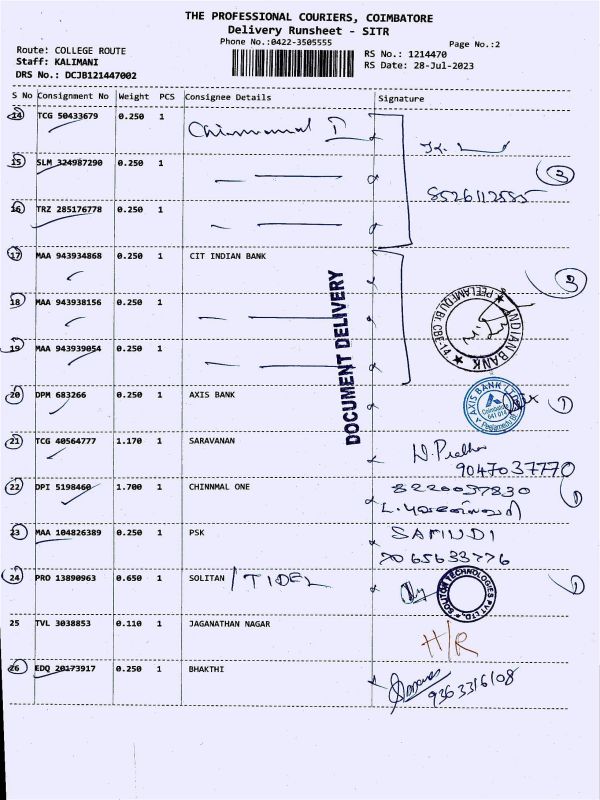 THE PROFESSIONAL COURIERS, COIMBATORE
Delivery Runsheet - SITR
Phone No.:0422-3505555
Page No.:2
Route: COLLEGE ROUTE
Staff: KALIMANI
DRS No.: DCJB121447002
RS No.: 1214470
RS Date: 28-Jul-2023
S No Consignment No Weight PCS Consignee Details Signature
14 TCG 50433679 0.250 1 Chinnamal I
15 SLM 324987290 0.250 1
3
8526112585
16 TRZ 285176778 0.250 1
17 MAA 943934868 0.250 1 CIT INDIAN BANK
3
18 MAA 943938156 0.250 1
INDIAN BANK
PEELAMEDU Br. CBE-14
19 MAA 943939054 0.250 1
DOCUMENT DELIVERY
20 DPM 683266 0.250 1 AXIS BANK
AXIS BANK LTD
Coimbatore
641 014
Peelamedu Br
1
21 TCG 40564777 1.170 1 SARAVANAN
9047037770
22 DPI 5198460 1.700 1 CHINNMAL ONE
8220057830
1
23 MAA 104826389 0.250 1 PSK
SAMUDI
7065633776
24 PRO 13890963 0.650 1 SOLITAN / TIDEL
SOLITON TECHNOLOGIES PVT LTD.,
1
25 TVL 3038853 0.110 1 JAGANATHAN NAGAR
H/R
26 EDQ 20173917 0.250 1 BHAKTHI
9363316108